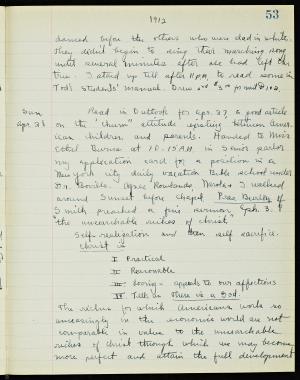 53
1912
danced before the others who were clad in white.
They didn't begin to sing their marching song
until several minutes after we had left the
tree. I stayed up till after 11 P.M. to read some in
Tod's Students' Manual. Drew 2nd $3.00
Sun. Apr. 28 Read in Outlook for Apr. 27 a good article
on the "chum" attitude existing between Amer-
ican children and parents. Handed to Miss
Ethel Burns at 10.15 A.M. in Senior parlor
my application card for a position in a
New York city daily vacation Bible school under
Dr. Boville. Agnes Rowlands, and I walked
around Sunset before chapel. Pres. Burton of
Smith preached a fine sermon, Eph. 3.
"the unsearchable riches of Christ"
Self-realization and then self sacrifice.
Christ is
I Practical
II Reasonable
III Loving - appeals to our affections
IV Tells us there is a God.
The riches for which Americans work so
unceasingly in the economic world are not
comparable in value to the unsearchable
riches of Christ through which we may become
more perfect and attain the full development